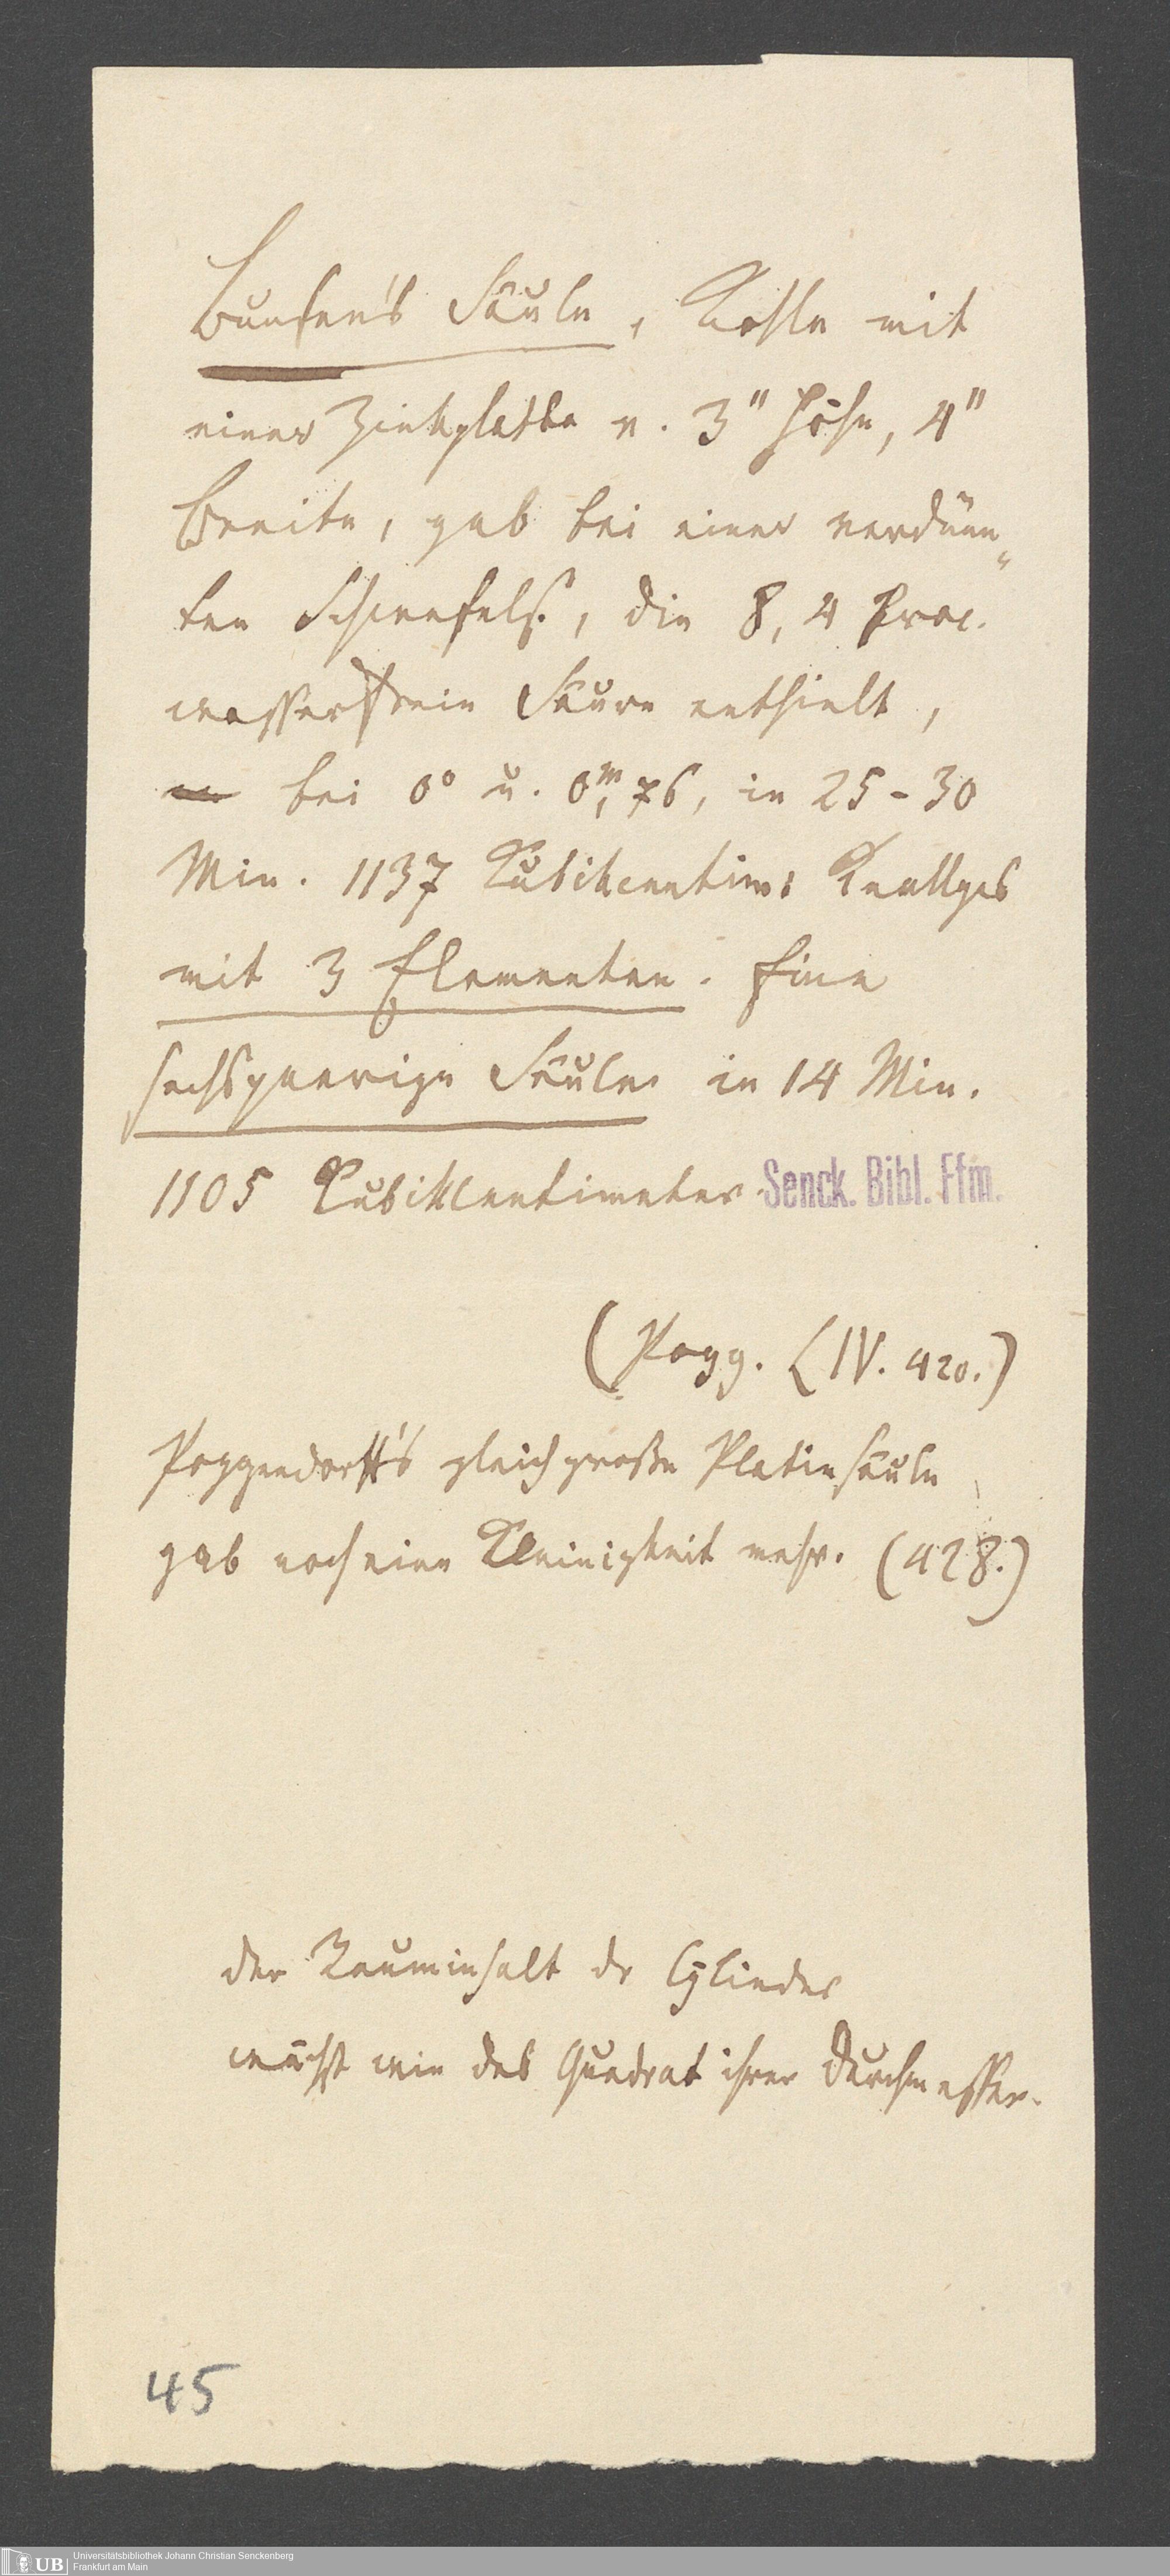 Bunsen's Säule, Kohle mit
einer Zinkplatte v. 3" Höhe, 4"
Breite, gab bei einer verdünn„
ten Schwefels., die 8,4 Proc.
wasserfreie Säure enthielt,
bei 0° u. 0,ᵐ76, in 25-30
Min. 1137 Kubikcentim: Knallgas
mit 3 Elementen. Eine
sechspaarige Säule in 14 Min.
1105 Kubikcentimeter.
Senck. Bibl. Ffm.
(Pogg. LIV. 420.)
Poggendorff's gleich große Platinsäule
gab noch eine Kleinigkeit mehr. (428.)
der Rauminhalt dr Cylinder
wächst wie das Quadrat ihrer Durchmesser.
45
UB Universitätsbibliothek Johann Christian Senckenberg
Frankfurt am Main